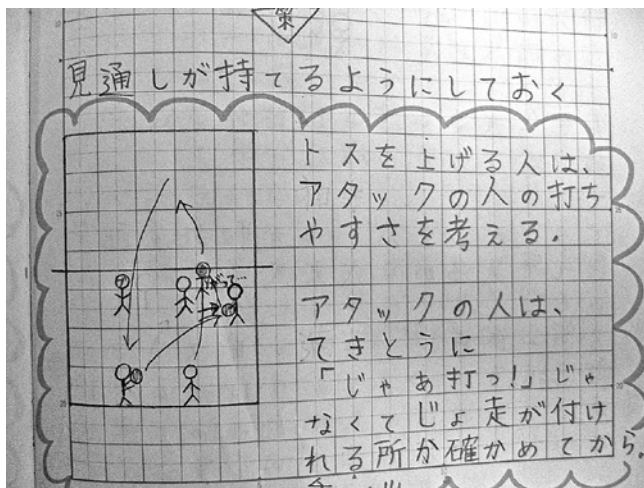 策
見通しが持てるようにしておく
トスを上げる人は、
アタックの人の打ち
やすさを考える.
アタックの人は、
てきとうに
「じゃあ打っ!」じゃ
なくてじょ走が付け
れる所か確かめてから.